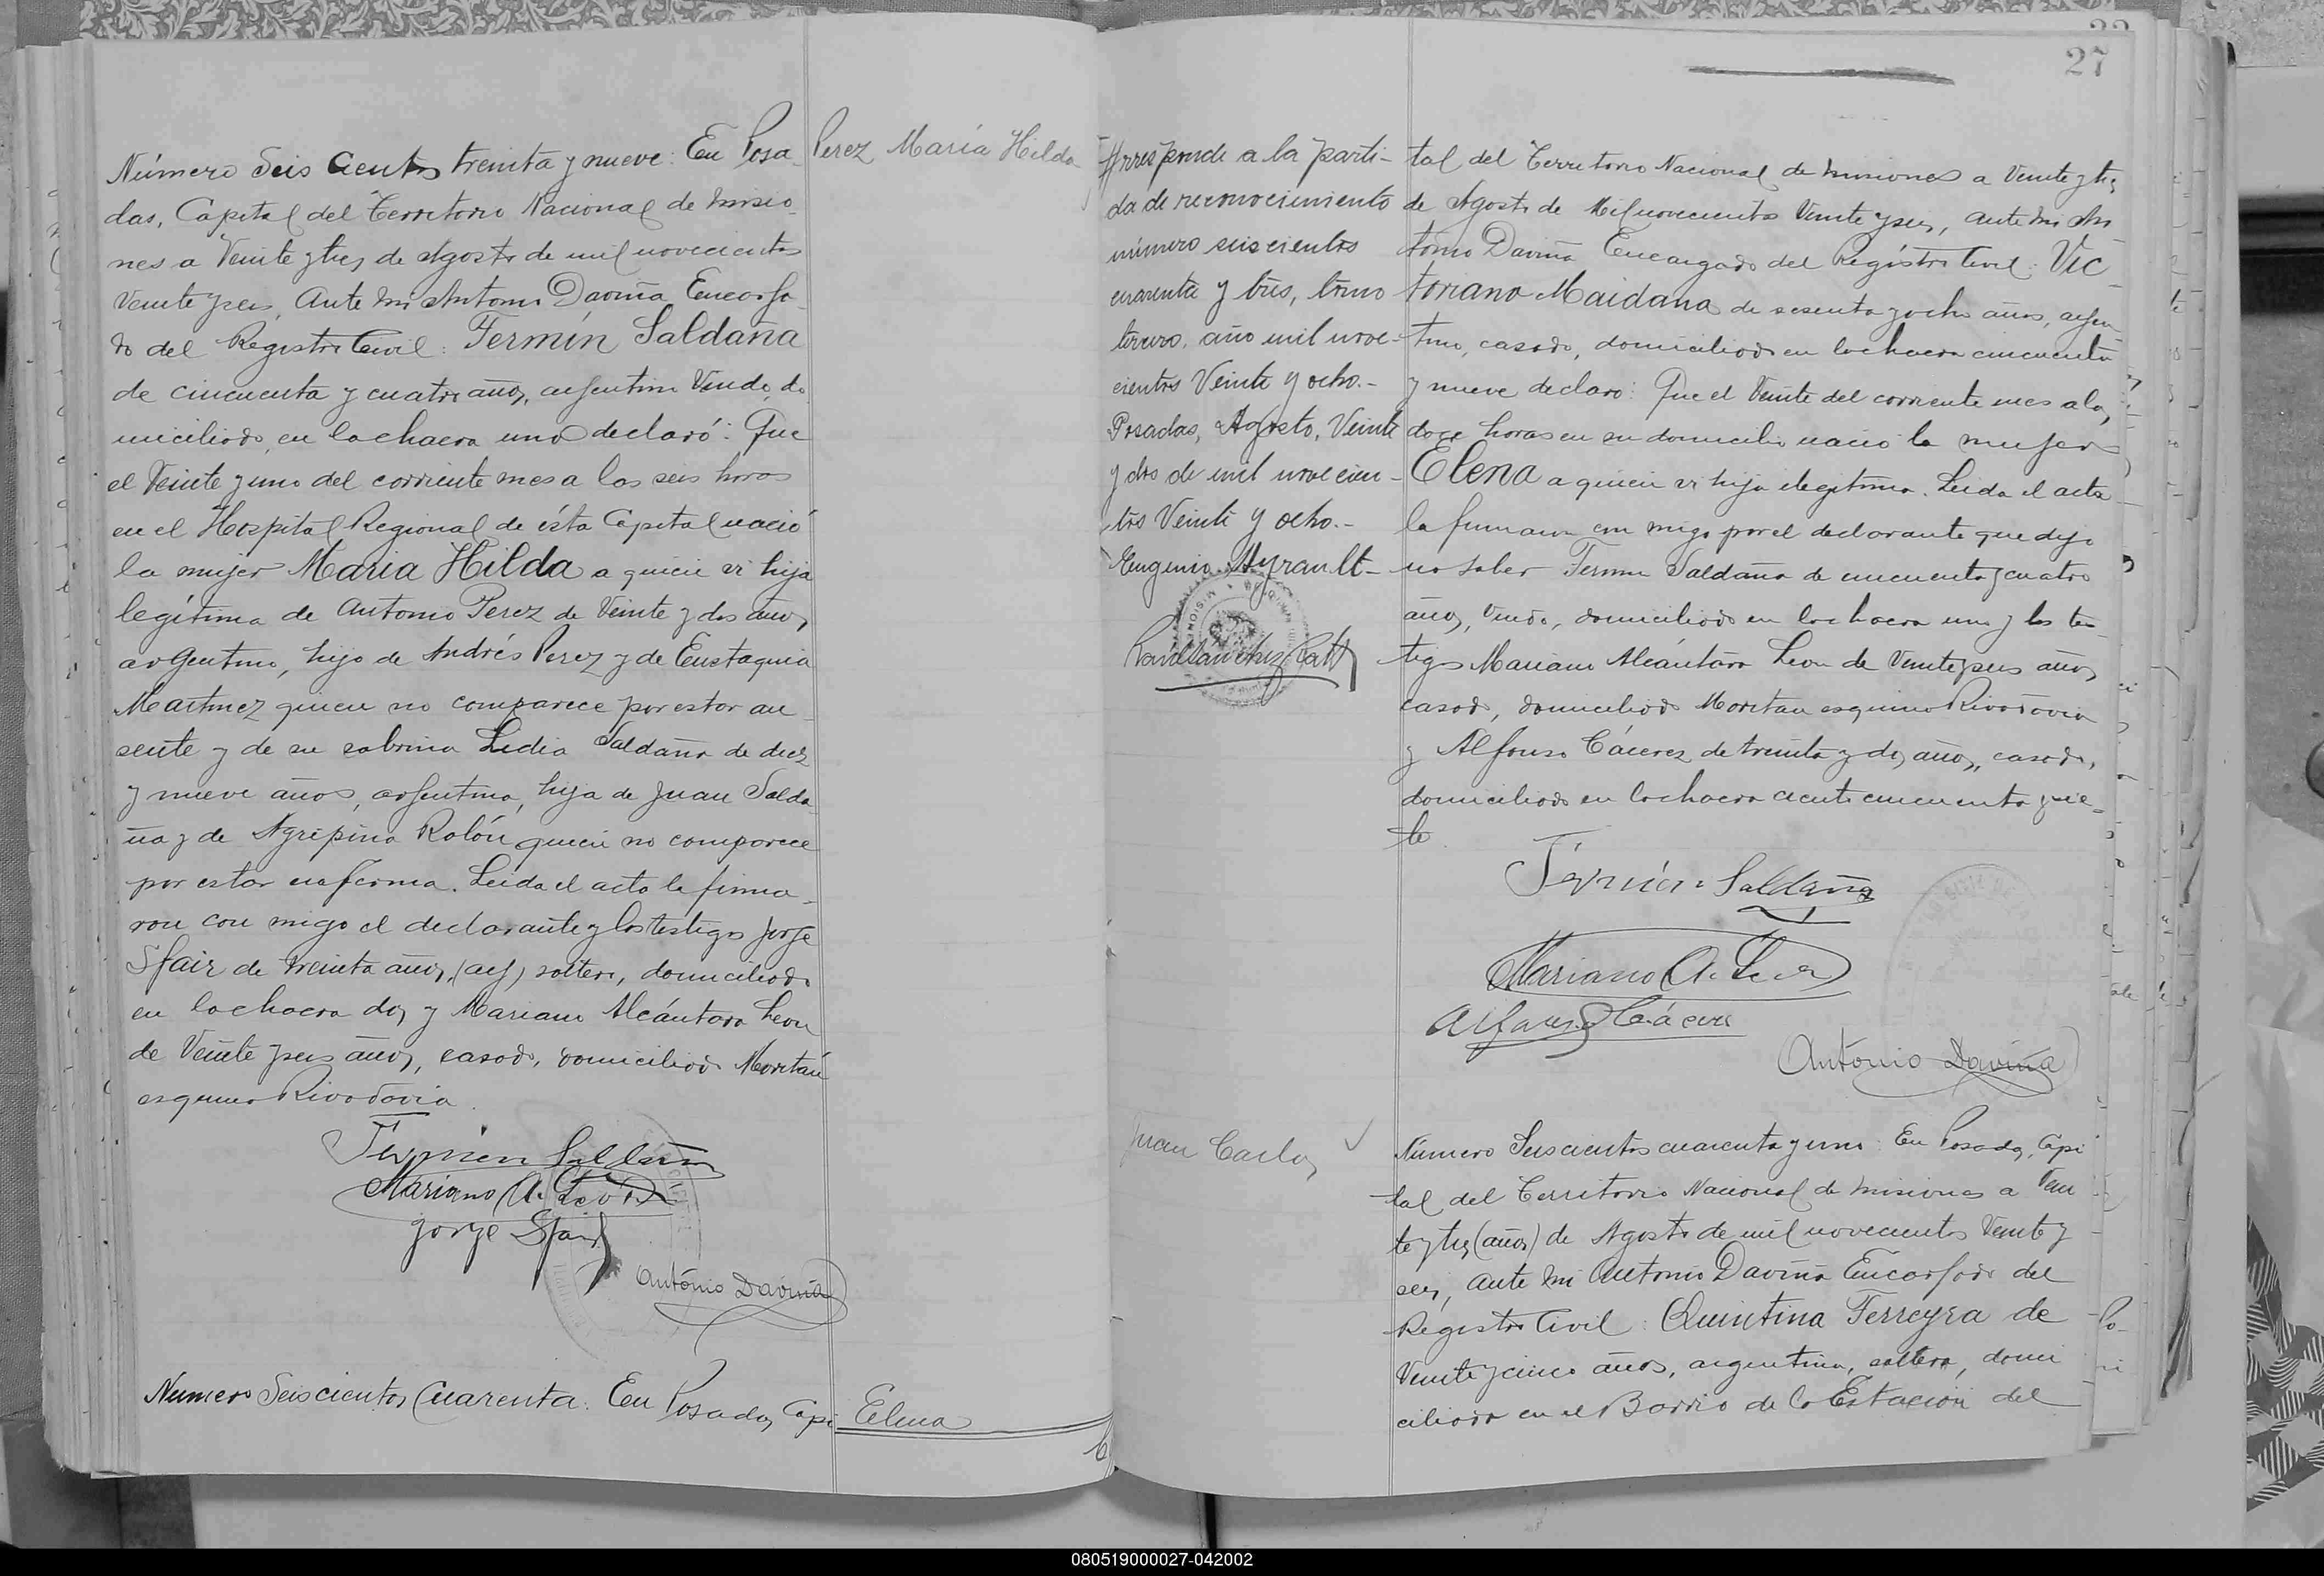 Número Seis cientos treinta y nueve: En Posa-
das, Capital del Territorio Nacional de Misio-
nes a Veinte y tres de Agosto de mil novecientos
Veinte y seis, Ante mi Antonio Daviña Encarga-
do del Registro Civil: Fermín Saldaña
de cincuenta y cuatro años, argentino Viudo, do
miciliado, en la chacra uno declaró: Que
el Veinte y uno del corriente mes a las seis horas
en el Hospital Regional de ésta Capital nació
la mujer María Hilda a quien vi hija
legítima de Antonio Perez de Veinte y dos años,
argentino, hijo de Andrés Perez y de Eustaquia
Martinez quien no comparece por estar au-
sente y de su sobrina Lidia Saldaña de diez
y nueve años, argentina, hija de Juan Salda-
ña y de Agripina Rolón quien no comparece
por estar enferma. Leida el acta la firma-
ron con migo el declarante y los testigos Jorge
Sfair de treinta años, (arg) soltero, domiciliado
en la chacra dos y Mariano Alcántara Leon
de Veinte y seis años, casado, domiciliado Moritán
esquina Rivadavia.
Fermín Saldaña
Mariano A. León
Jorge Sfair
Antonio Daviña
Numero Seiscientos Cuarenta: En Posadas, Capi
Perez María Hilda
Elena
27
Corresponde a la parti-
da de reconocimiento
número seiscientos
cuarenta y tres, tomo
tercero, año mil nove-
cientos Veinte y ocho.-
Posadas, Agosto, Veinte
y dos de mil novecien-
tos Veinte y ocho.-
Eugenio Ayrault-
tal del Territorio Nacional de Misiones a Veinte y tres
de Agosto de Mil novecientos Veinte y seis, ante mi An
tonio Daviña Encargado del Registro Civil: Vic-
toriano Maidana de sesenta y ocho años, argen-
tino, casado, domiciliado en la chacra cincuenta
y nueve declaro: Que el Veinte del corriente mes a las
doce horas en su domicilio nacio la mujer
Elena a quien vi hija ilegitima. Leida el acta
la firmaron con migo por el declarante que dijo
no saber Fermin Saldaña de cincuenta y cuatro
años, viudo, domiciliado en la chacra uno y los tes-
tigos Mariano Alcántara Leon de Veinte y seis años
casado, domiciliado Moritan esquina Rivadavia
y Alfonso Cáceres de treinta y dos años, casado,
domiciliado en la chacra ciento cincuenta y sie-
te.
Fermín Saldaña
Mariano A. León
Alfonso Cáceres
Antonio Daviña
Juan Carlos
Número Seiscientos cuarenta y uno: En Posadas, Capi
tal del Territorio Nacional de Misiones a Vein
te y tres (años) de Agosto de mil novecientos Veinte y
seis, ante mi Antonio Daviña Encargado del
Registro Civil: Quintina Ferreyra de
Veinte y cinco años, argentina, soltera, domi
ciliada en el Barrio de la Estación del
080519000027-042002